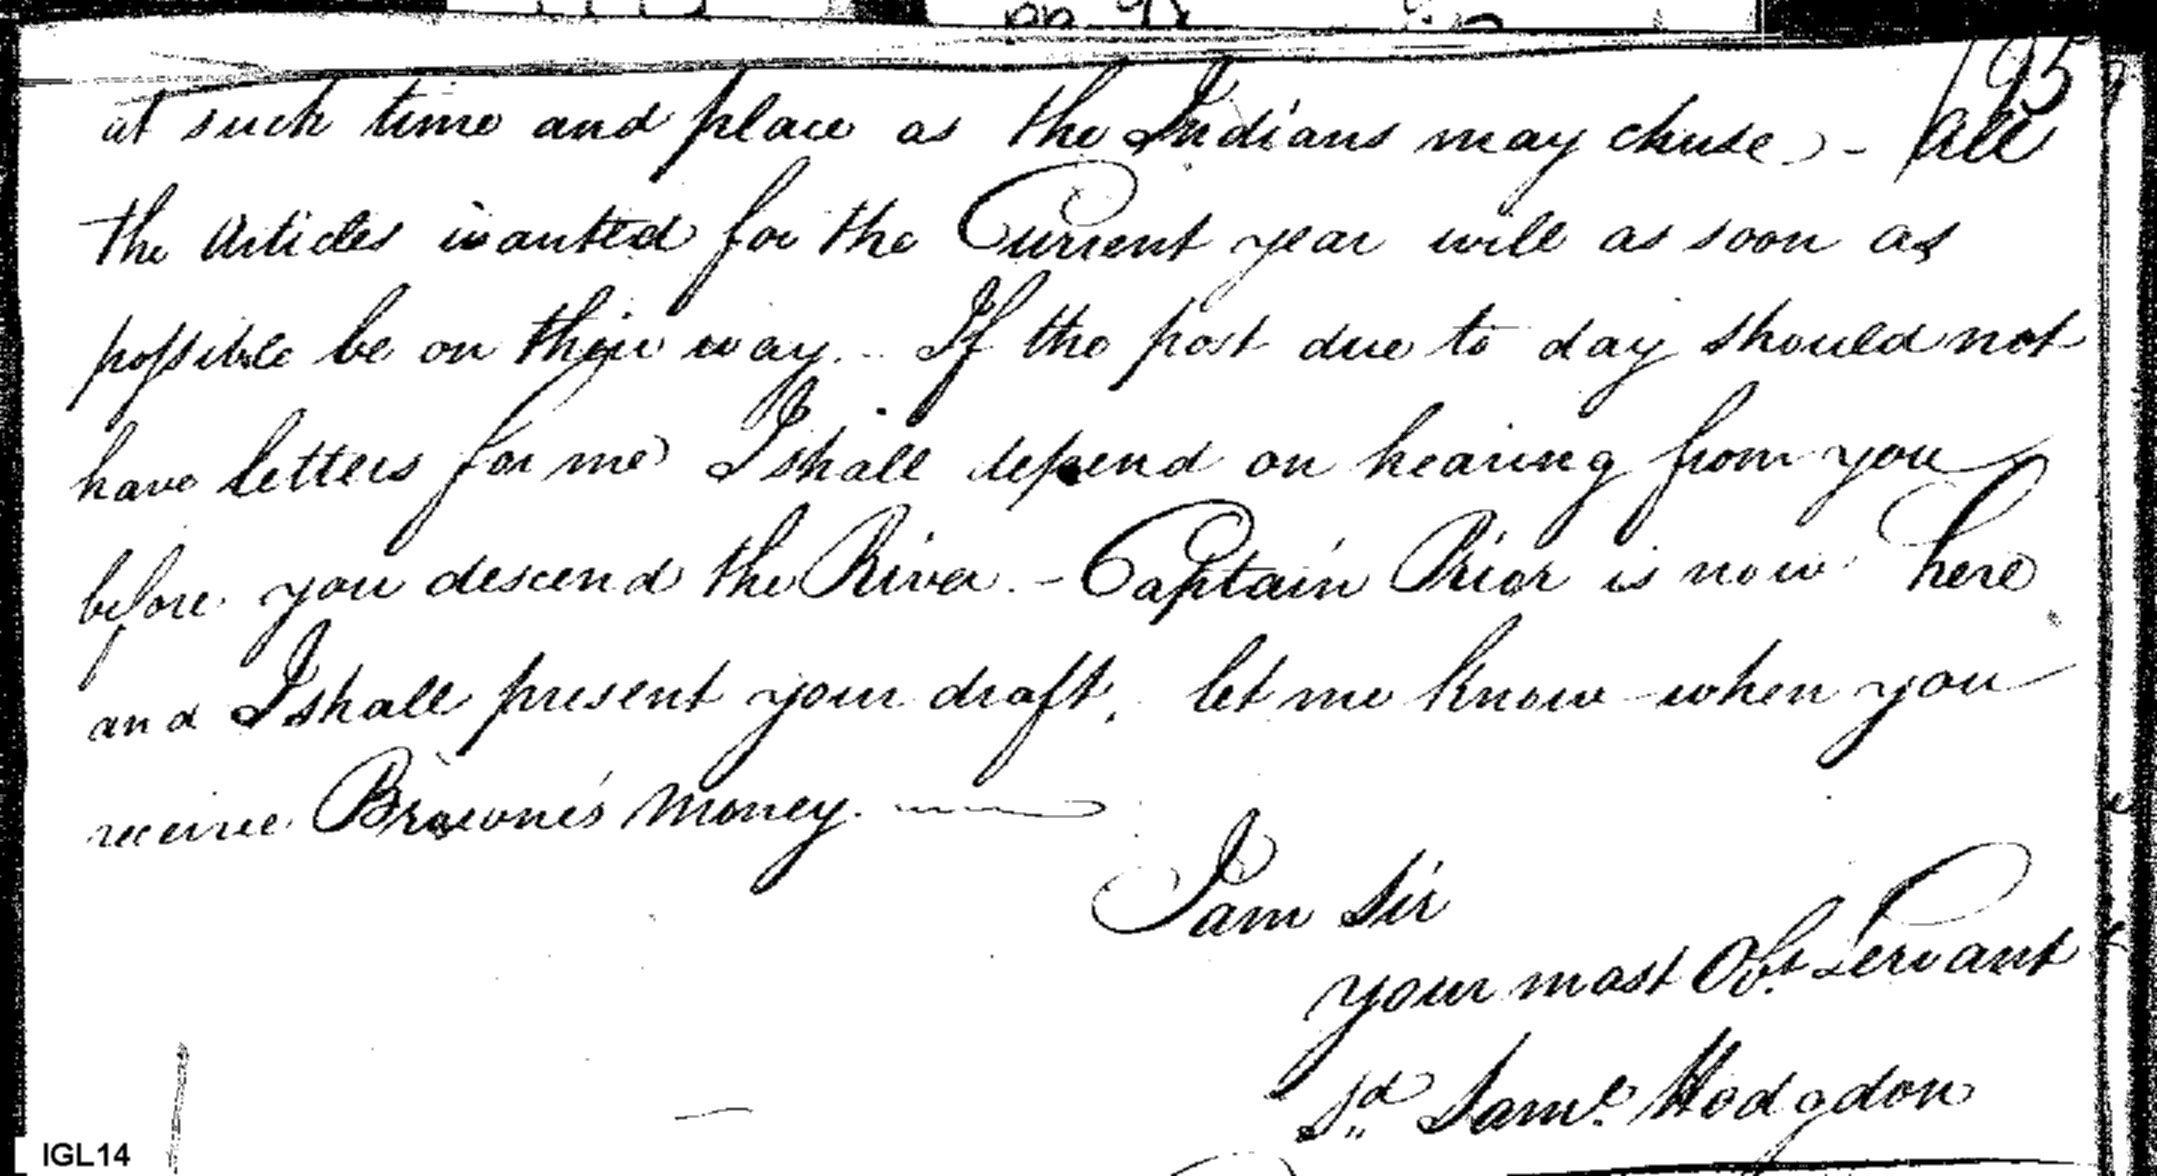 195
at such time and place as the Indians may chuse. - All
the Articles wanted for the Current year will as soon as
possible be on their way. - If the post due to day should not
have letters for me I shall depend on hearing from you
before you descend the River. - Captain Prior is now here
and I shall present your draft, let me know when you
receive Browne's Money.
I am Sir
your most Obt. Servant
Sd. Saml. Hodgdon
IGL14